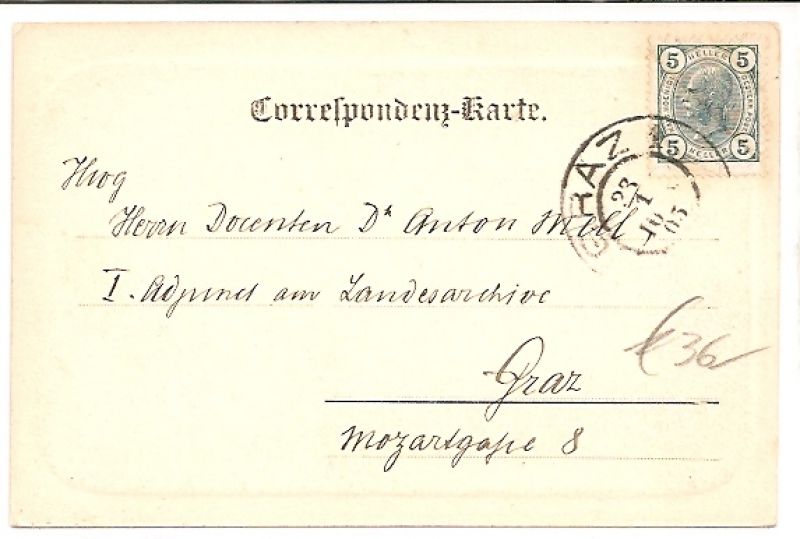 5 HELLER 5
5 HELLER 5
Correspondenz-Karte.
GRAZ
23
I
10
03
Hwg
Herrn Docenten Dr Anton Mell
I. Adjunct am Landesarchive
Graz
Mozartgasse 8
€36